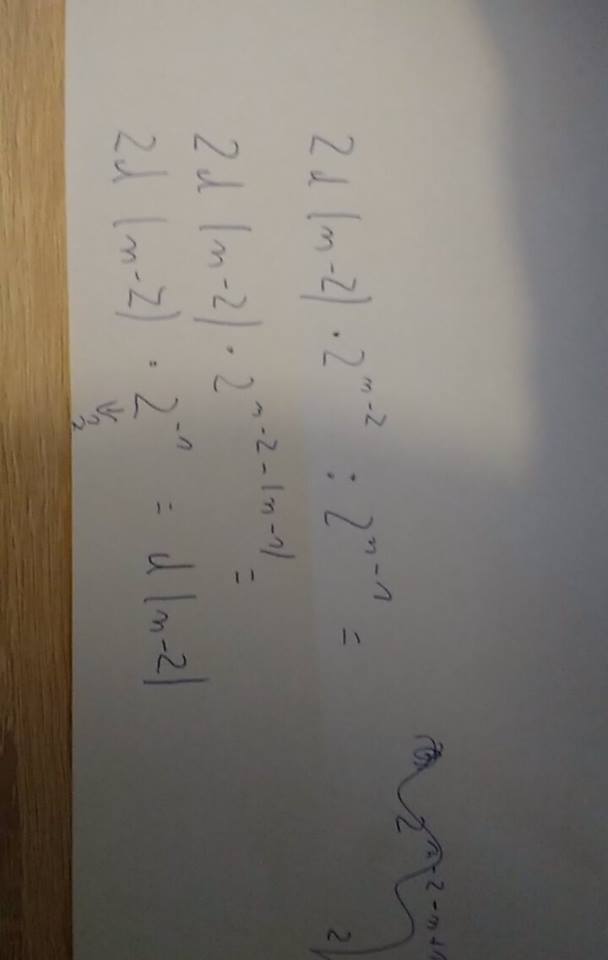 2d (n-2) · 2^{n-2} : 2^{n-1} =
2d (n-2) · 2^{n-2-(n-1)} =
2d (n-2) · 2^{-1} = d (n-2)
↓
1/2
2^{n-2-n+1}
2